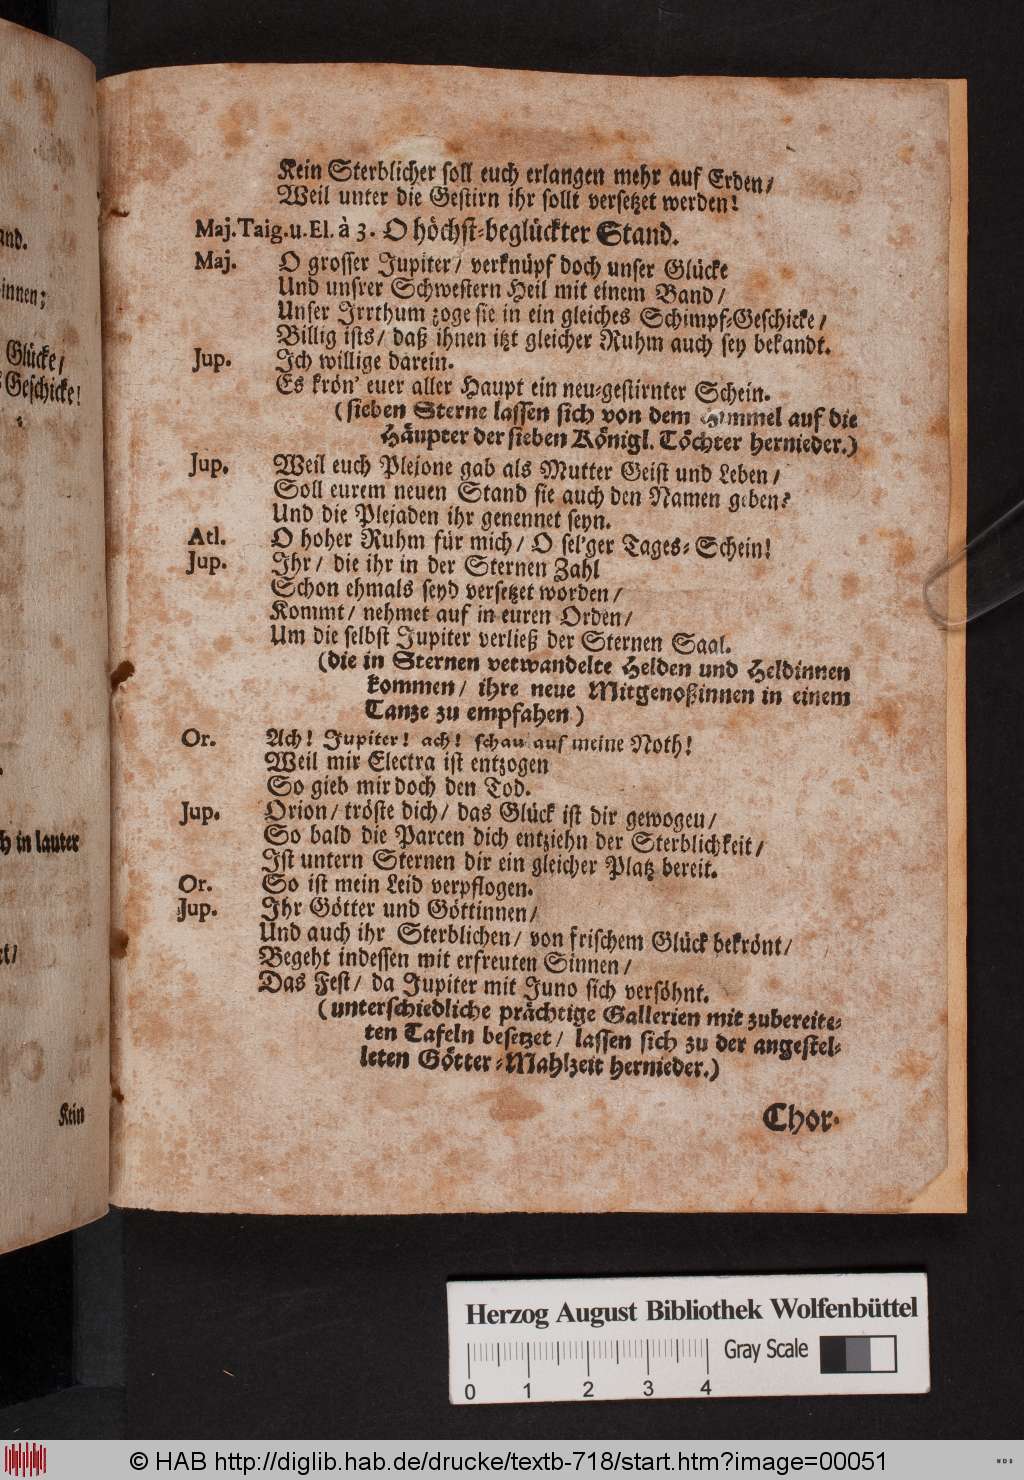 and.
innen;
Glücke/
Geschicke!
ch in lauter
et/
Kein
Kein Sterblicher soll euch erlangen mehr auf Erden/
Weil unter die Gestirn ihr sollt versetzet werden!
Maj. Taig. u. El. à 3. O höchst-beglückter Stand.
Maj. O grosser Jupiter/ verknüpf doch unser Glücke
Und unsrer Schwestern Heil mit einem Band/
Unser Irrthum zoge sie in ein gleiches Schimpf-Geschicke/
Billig ists/ daß ihnen itzt gleicher Ruhm auch sey bekandt.
Jup. Ich willige darein.
Es krön' euer aller Haupt ein neu-gestirnter Schein.
(sieben Sterne lassen sich von dem Himmel auf die
Häupter der sieben Königl. Töchter hernieder.)
Jup. Weil euch Plejone gab als Mutter Geist und Leben/
Soll eurem neuen Stand sie auch den Namen geben?
Und die Plejaden ihr genennet seyn.
Atl. O hoher Ruhm für mich/ O sel'ger Tages-Schein!
Jup. Ihr/ die ihr in der Sternen Zahl
Schon ehmals seyd versetzet worden/
Kommt/ nehmet auf in euren Orden/
Um die selbst Jupiter verließ der Sternen Saal.
(die in Sternen vetwandelte Helden und Heldinnen
kommen/ ihre neue Mitgenoßinnen in einem
Tanze zu empfahen)
Or. Ach! Jupiter! ach! schau auf meine Noth!
Weil mir Electra ist entzogen
So gieb mir doch den Tod.
Jup. Orion/ tröste dich/ das Glück ist dir gewogen/
So bald die Parcen dich entziehn der Sterblichkeit/
Ist untern Sternen dir ein gleicher Platz bereit.
Or. So ist mein Leid verpflogen.
Jup. Ihr Götter und Göttinnen/
Und auch ihr Sterblichen/ von frischem Glück bekrönt/
Begeht indessen mit erfreuten Sinnen/
Das Fest/ da Jupiter mit Juno sich versöhnt.
(unterschiedliche prächtige Gallerien mit zubereite-
ten Tafeln besetzet/ lassen sich zu der angestel-
leten Götter-Mahlzeit hernieder.)
Chor.
Herzog August Bibliothek Wolfenbüttel
Gray Scale
0 1 2 3 4
© HAB http://diglib.hab.de/drucke/textb-718/start.htm?image=00051